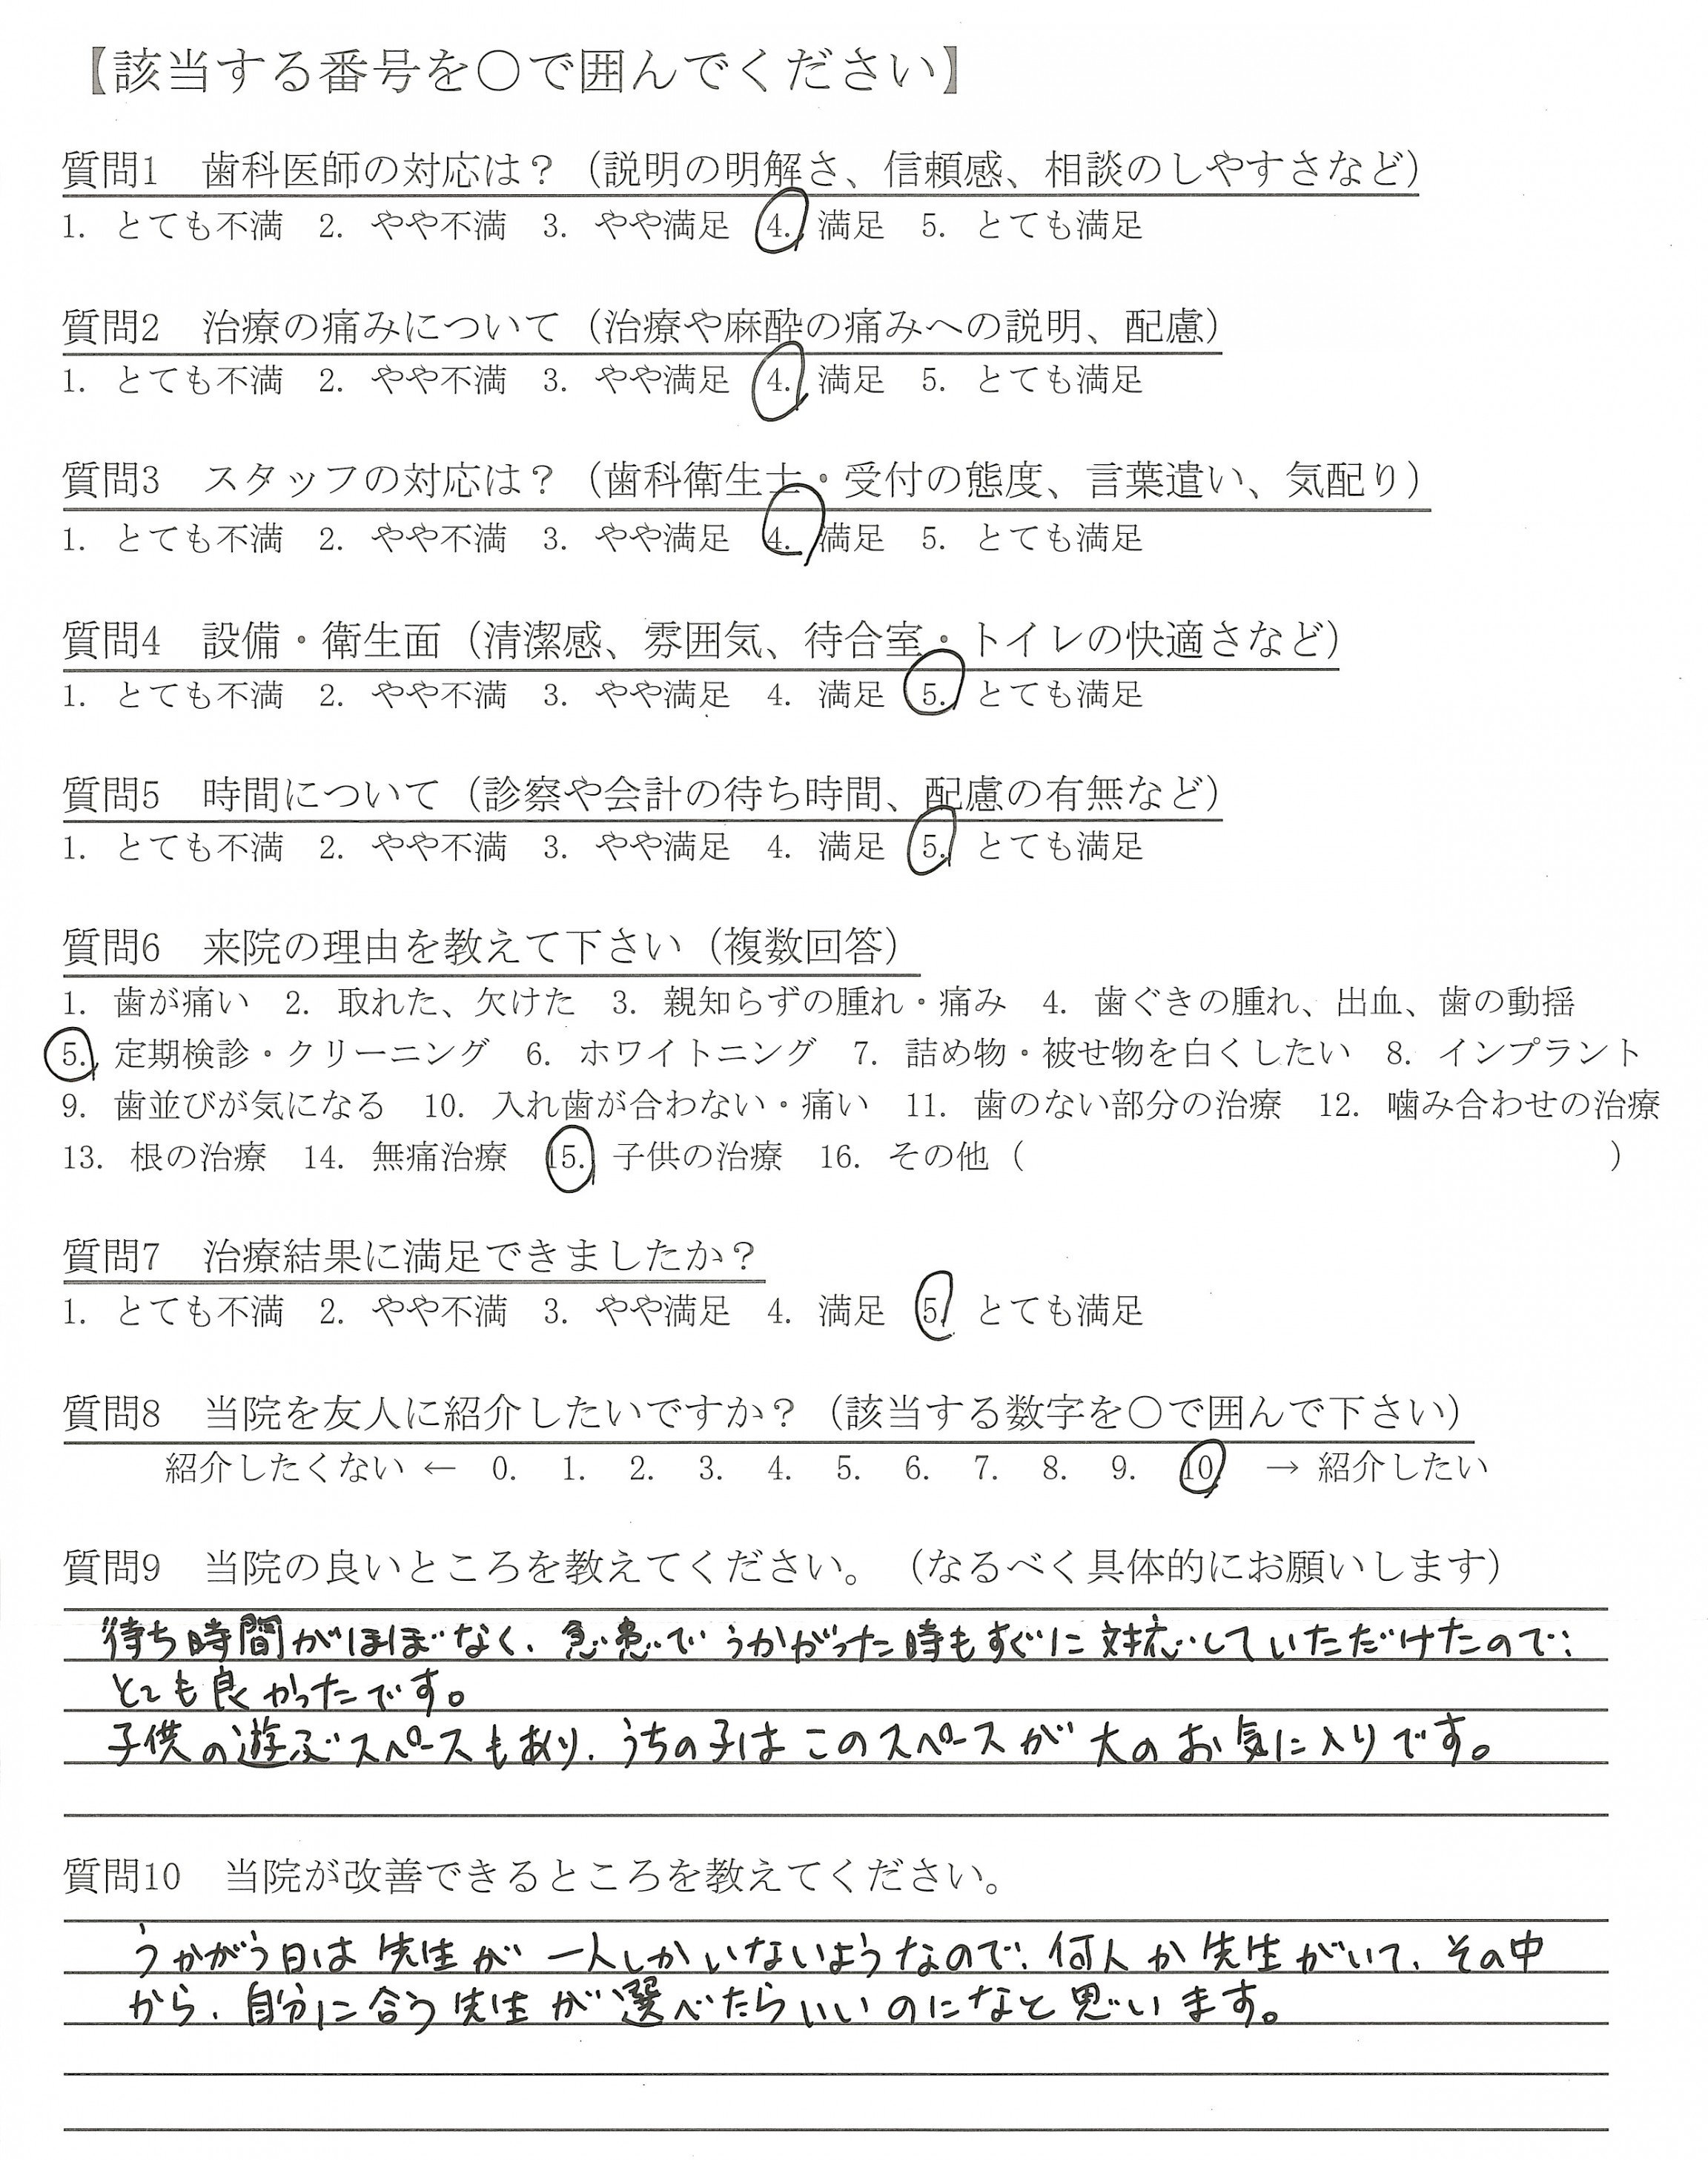 【該当する番号を○で囲んでください】
質問1　歯科医師の対応は？（説明の明解さ、信頼感、相談のしやすさなど）
1. とても不満　2. やや不満　3. やや満足　4. 満足　5. とても満足
質問2　治療の痛みについて（治療や麻酔の痛みへの説明、配慮）
1. とても不満　2. やや不満　3. やや満足　4. 満足　5. とても満足
質問3　スタッフの対応は？（歯科衛生士・受付の態度、言葉遣い、気配り）
1. とても不満　2. やや不満　3. やや満足　4. 満足　5. とても満足
質問4　設備・衛生面（清潔感、雰囲気、待合室・トイレの快適さなど）
1. とても不満　2. やや不満　3. やや満足　4. 満足　5. とても満足
質問5　時間について（診察や会計の待ち時間、配慮の有無など）
1. とても不満　2. やや不満　3. やや満足　4. 満足　5. とても満足
質問6　来院の理由を教えて下さい（複数回答）
1. 歯が痛い　2. 取れた、欠けた　3. 親知らずの腫れ・痛み　4. 歯ぐきの腫れ、出血、歯の動揺
5. 定期検診・クリーニング　6. ホワイトニング　7. 詰め物・被せ物を白くしたい　8. インプラント
9. 歯並びが気になる　10. 入れ歯が合わない・痛い　11. 歯のない部分の治療　12. 噛み合わせの治療
13. 根の治療　14. 無痛治療　15. 子供の治療　16. その他（　　　　　　　　）
質問7　治療結果に満足できましたか？
1. とても不満　2. やや不満　3. やや満足　4. 満足　5. とても満足
質問8　当院を友人に紹介したいですか？（該当する数字を○で囲んで下さい）
紹介したくない ←　0.　1.　2.　3.　4.　5.　6.　7.　8.　9.　10.　→ 紹介したい
質問9　当院の良いところを教えてください。（なるべく具体的にお願いします）
待ち時間がほぼなく、急患でうかがった時もすぐに対応していただけたので、
とても良かったです。
子供の遊ぶスペースもあり、うちの子はこのスペースが大のお気に入りです。
質問10　当院が改善できるところを教えてください。
うかがう日は先生が一人しかいないようなので、何人か先生がいて、その中
から、自分に合う先生が選べたらいいのになと思います。